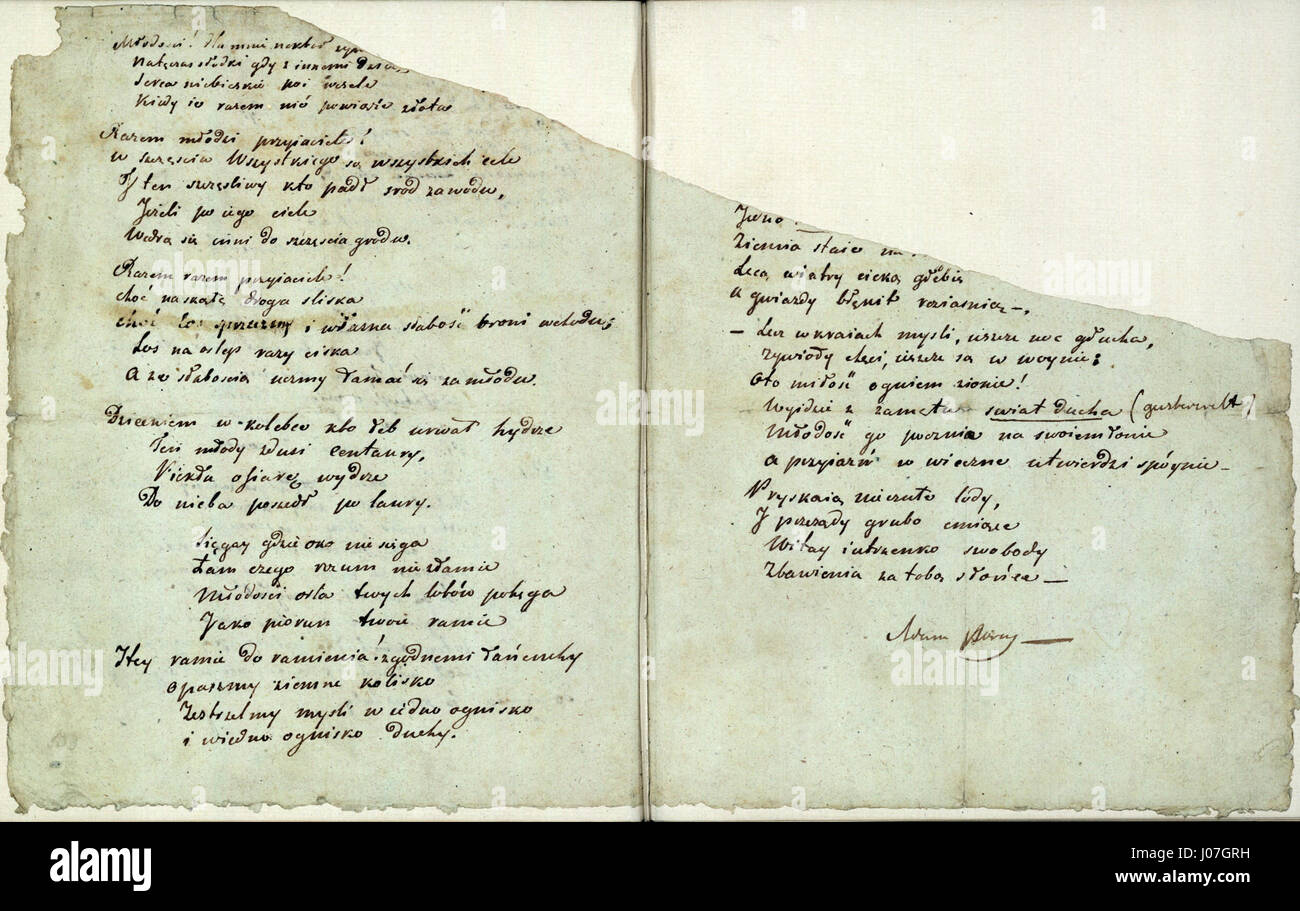 Młodości! Dla mnie nektar
Natęczas słodki gdy z innemi
Serca niebieskie poi wesele
Kiedy ie razem nić powiąże złota
Razem młodzi przyiaciele!
w szczęściu Wszystkiego są wszystkich cele
Y ten szczęśliwy kto padł sród zawodu,
Jeżeli po iego ciele
Wedrą się inni do szczęścia grodu.
Razem razem przyiaciele!
choć na skałę droga sliska
i własna słabość broni wchodu;
Los na oslep razy ciska
A ze słabością uczmy łamać się za młodu.
Dzieckiem w kolebce kto łeb urwał hydrze
Ten młody zdusi Centaury,
Piekłu ofiarę wydrze
Do nieba poszedł po laury.
Sięgay gdzie oko nie sięga
Łam czego rozum nie złamie
Młodości orla twych lotów potęga
Jako piorun twoie ramie
Hey ramie do ramienia! zgodnemi łańcuchy
opaszmy ziemne kolisko
Zestrzelmy mysli w iedno ognisko
i w iedno ognisko duchy.
Ziemia staie na
Lecą wiatry cieką głębie
A gwiazdy błękit roziaśnią –.
– Lecz w kraiach mysli, ieszcze noc głucha,
żywioły chęci ieszcze są w woynie;
Oto miłość ogniem zionie!
Wyidzie z zamętu swiat ducha (
Młodość go pocznie na swoiem łonie
A przyiaźń w wieczne utwierdzi spóynie –
Pryskaią nieczułe lody,
Y przesądy grubo cmiące
Witay iutrzenko swobody
Zbawienia za tobą słońce –
Adam
alamy
alamy
alamy
alamy
alamy
alamy
alamy
a
alamy
Image ID: J07GRH
www.alamy.com